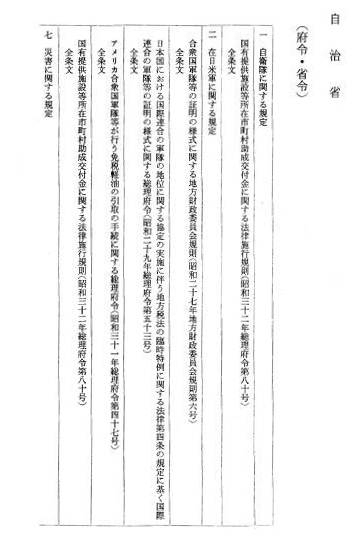 自治省
(府令・省令)
一 自衛隊に関する規定
国有提供施設等所在市町村助成交付金に関する法律施行規則(昭和三十二年総理府令第八十号)
全条文
二 在日米軍に関する規定
合衆国軍隊等の証明の様式に関する地方財政委員会規則(昭和二十七年地方財政委員会規則第六号)
全条文
日本国における国際連合の軍隊の地位に関する協定の実施に伴う地方税法の臨時特例に関する法律第四条の規定に基く国際
連合の軍隊等の証明の様式に関する総理府令(昭和二十九年総理府令第五十三号)
全条文
アメリカ合衆国軍隊等が行う免税軽油の引取の手続に関する総理府令(昭和三十一年総理府令第四十七号)
全条文
国有提供施設等所在市町村助成交付金に関する法律施行規則(昭和三十二年総理府令第八十号)
全条文
七 災害に関する規定